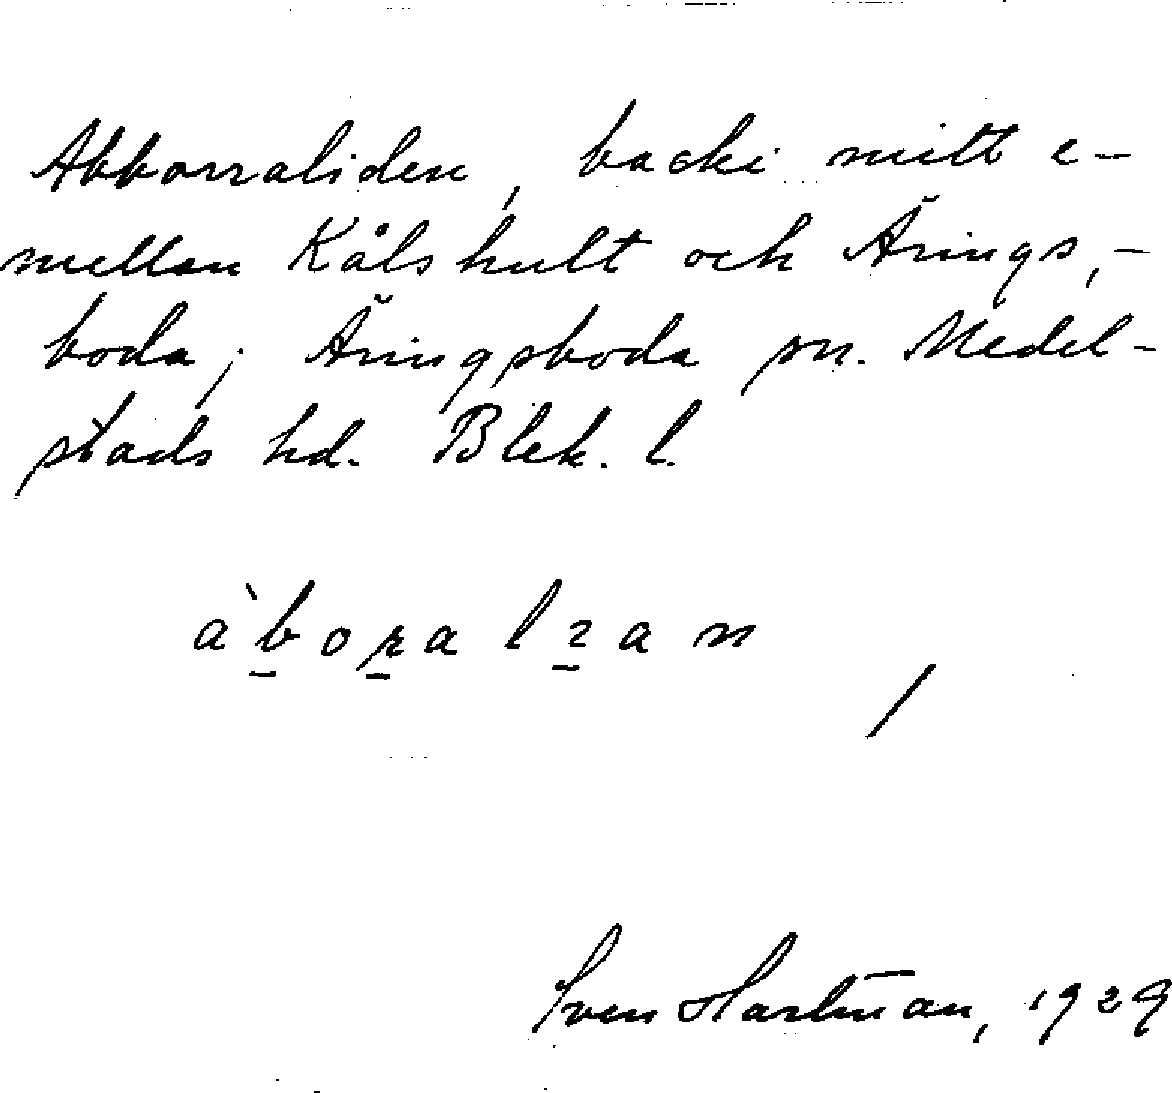 Abborraliden, backe mitt e-
mellan Kålshult och Ärings,-
boda; Äringsboda sn. Medel-
stads hd. Blek. l.
àboralɿan
/
Sven Hartman, 1929